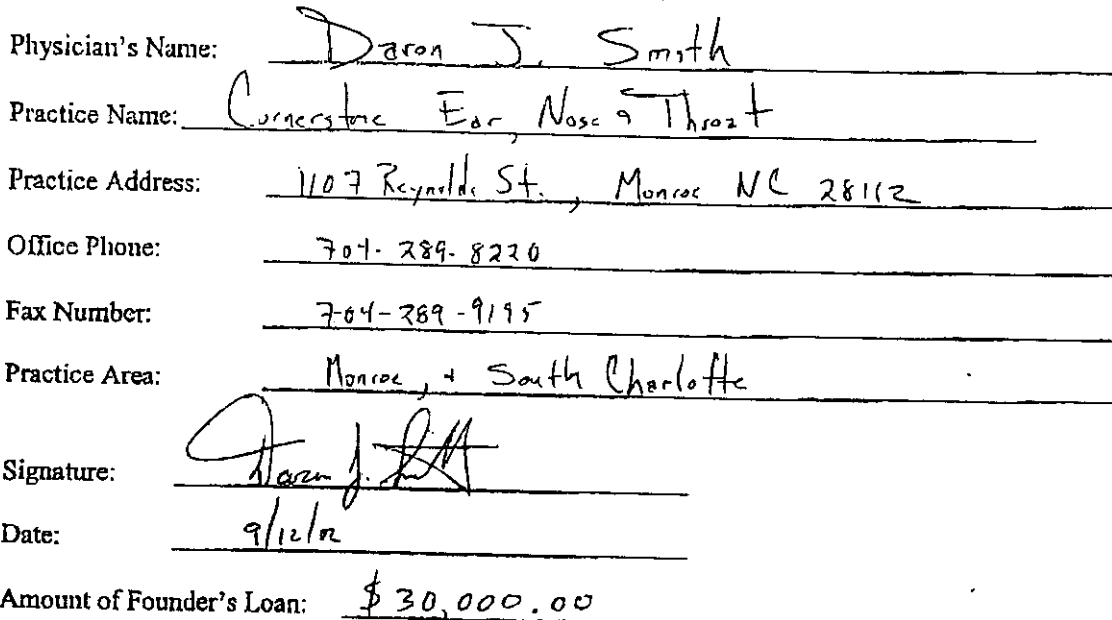 Physician's Name: Daron J. Smith
Practice Name: Cornerstone Ear, Nose & Throat
Practice Address: 1107 Reynolds St., Monroe NC 28112
Office Phone: 704-289-8220
Fax Number: 704-289-9195
Practice Area: Monroe, + South Charlotte
Signature: Daron J. Smith
Date: 9/12/02
Amount of Founder's Loan: $30,000.00